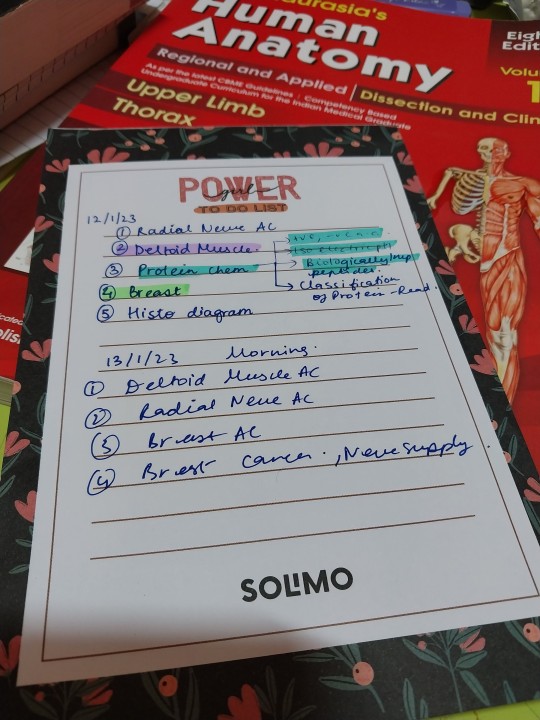 aurasia's
Human
Anatomy
Eig
Edit
Regional and Applied | Dissection and Clin
Volu
1
As per the latest CBME Guidelines : Competency Based
Undergraduate Curriculum for the Indian Medical Graduate
Upper Limb
Thorax
POWER
girl
TO DO LIST
12/1/23
① Radial Nerve AC
② Deltoid Muscle
③ Protein Chem
Isoelectric pt
Biologically Imp
peptides.
④ Breast
Classification
of Protein - Read.
⑤ Histo diagram
13/1/23 Morning.
① Deltoid Muscle AC
② Radial Nerve AC
③ Breast AC
④ Breast Cancer. , Nerve supply.
SOLIMO